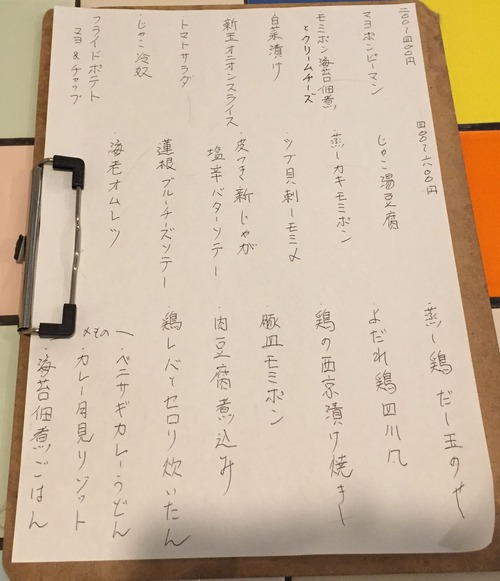 二〇〇〜四〇〇円
マヨポンピーマン
モミポン海苔佃煮
とクリームチーズ
白菜漬け
新玉オニオンスライス
トマトサラダ
じゃこ冷奴
フライドポテト
マヨ&チャップ
四〇〇〜六〇〇円
じゃこ湯豆腐
蒸しカキモミポン
・ツブ貝刺しモミ〆
・皮つき新じゃが
塩辛バターソテー
蓮根ブルーチーズソテー
・海老オムレツ
・蒸し鶏だし玉のせ
・よだれ鶏四川風
・鶏の西京漬け焼き
・豚皿モミポン
・肉豆腐煮込み
・鶏レバとセロリ炊いたん
〆もの
・ベニサギカレーうどん
・カレー月見リゾット
・海苔佃煮ごはん